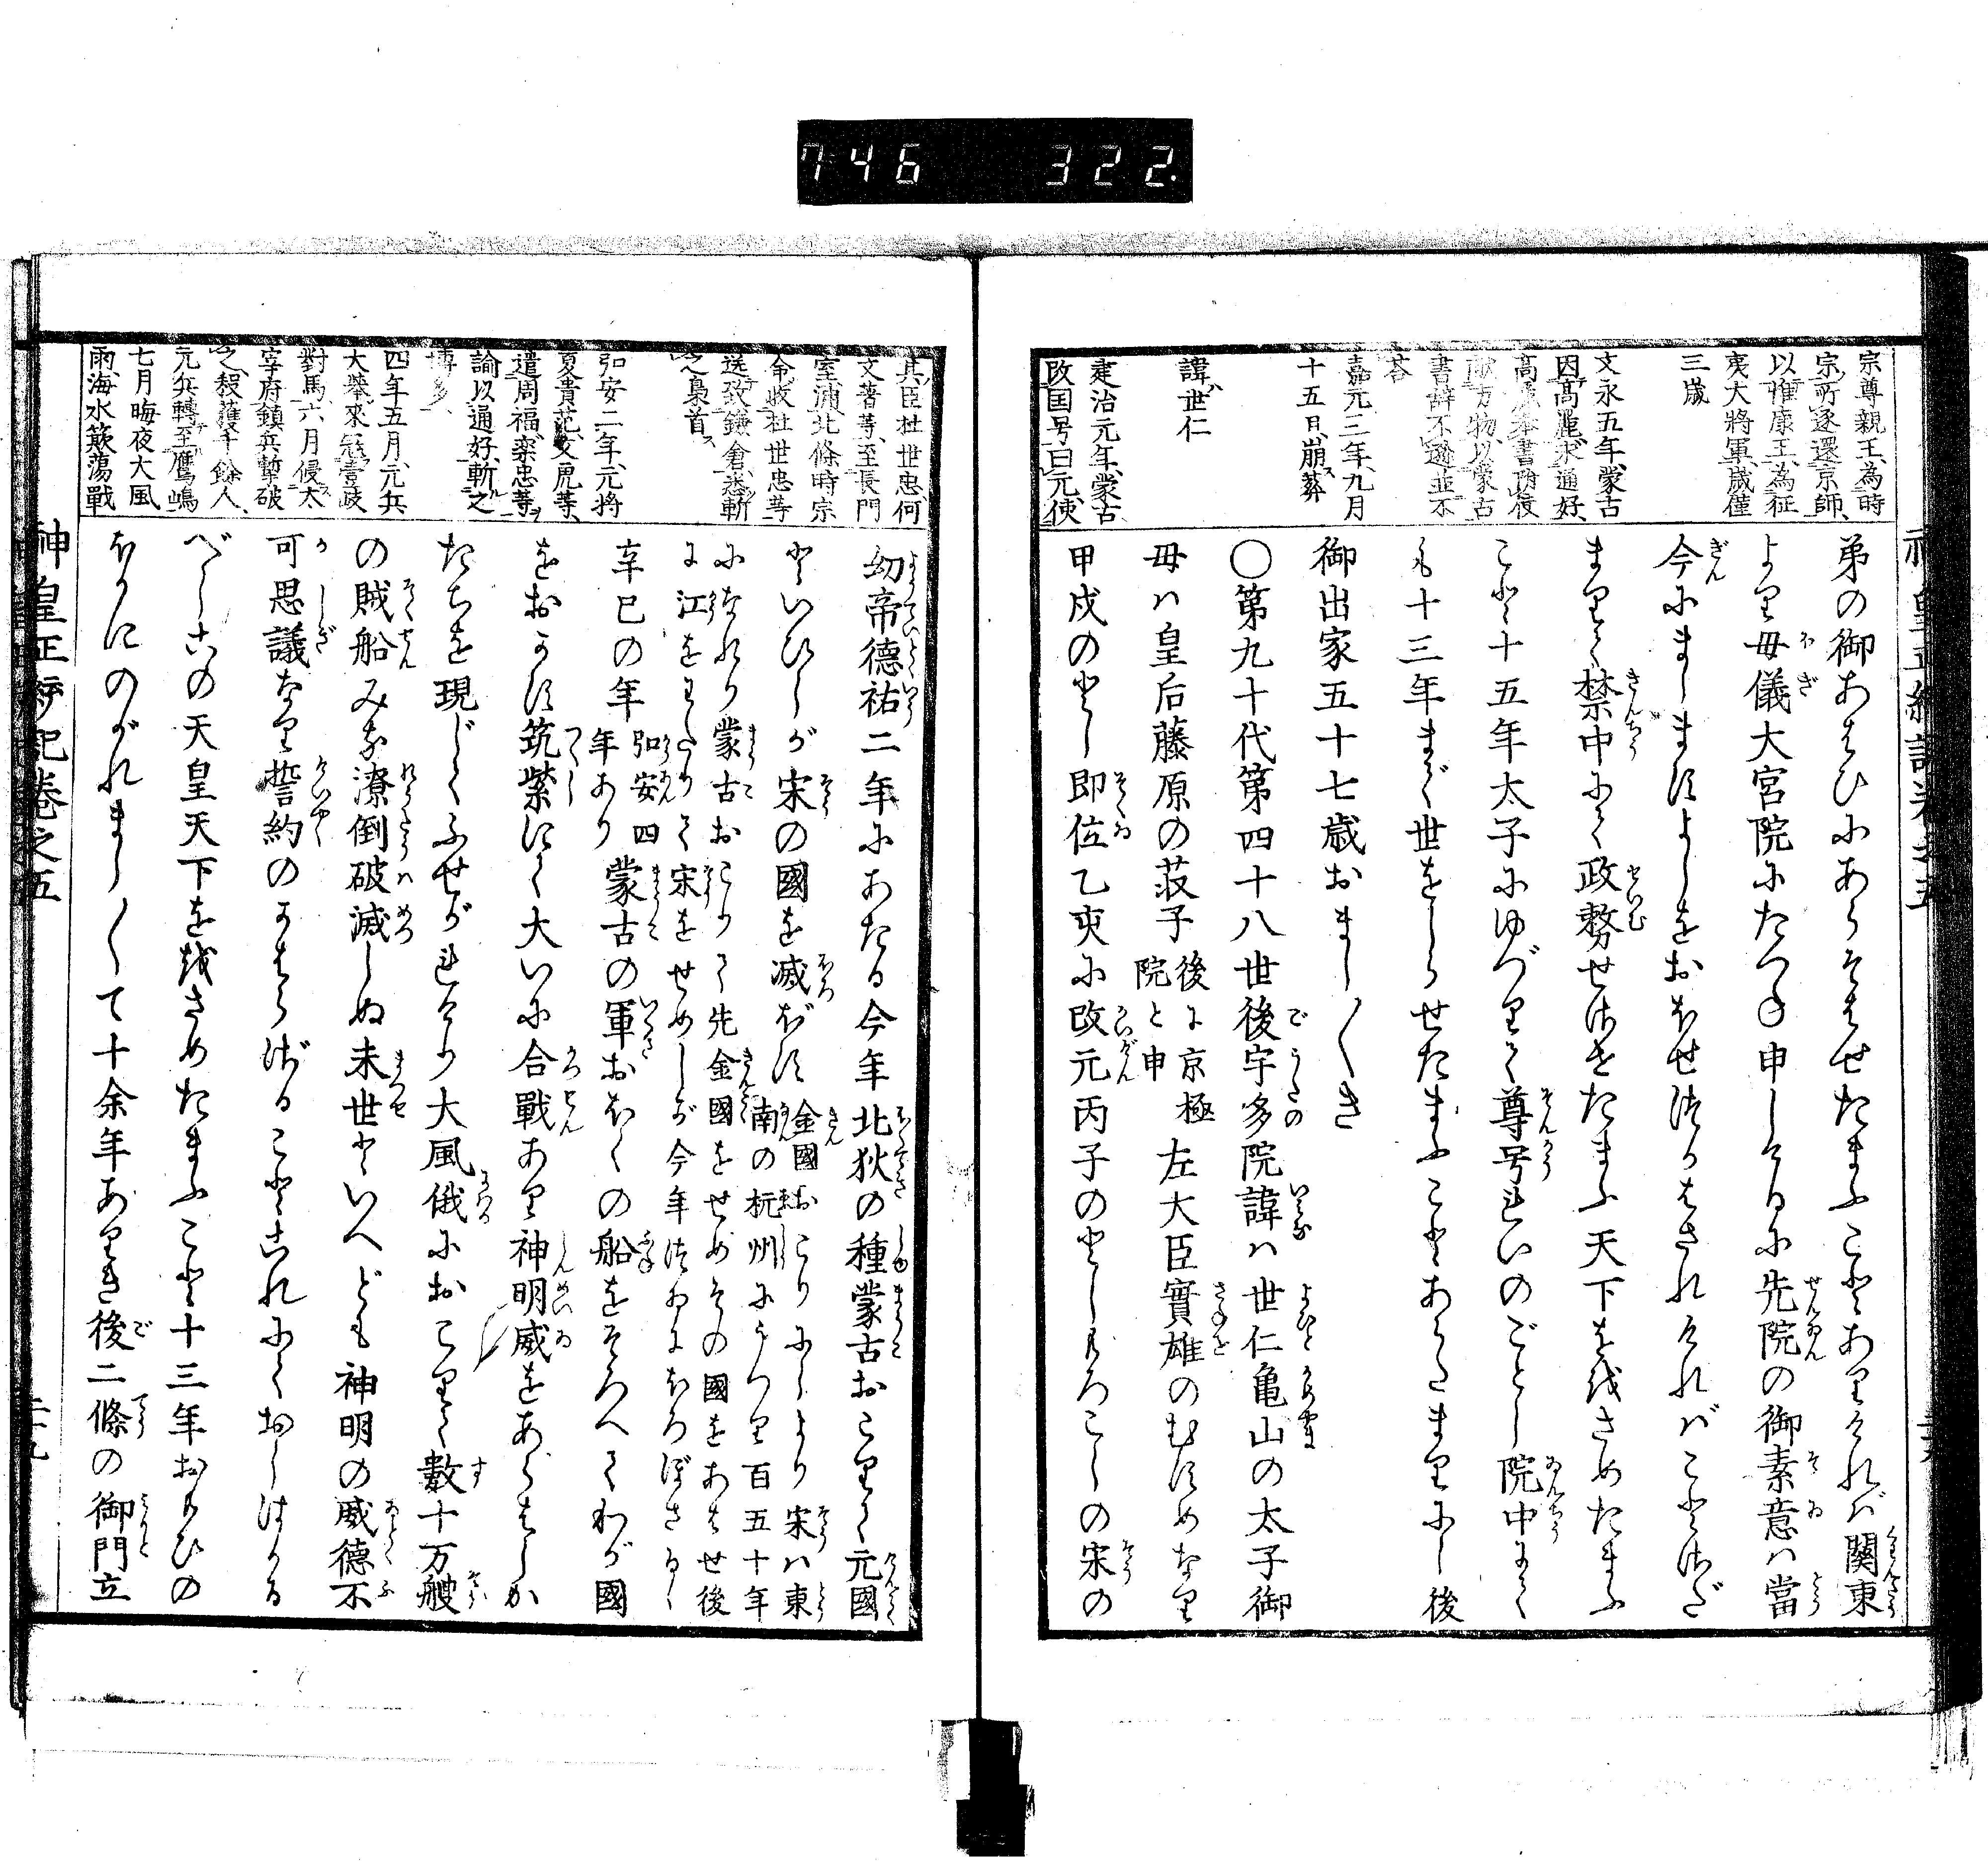 746 322.
宗尊親王、為時
宗所逐還京師、
以惟康王、為征
夷大將軍、歲僅
三歲
文永五年、蒙古
因高麗求通好、
書辞不遜並不
答
嘉元二年、九月
十五日、崩葬
諱世仁
建治元年、蒙古
改国号曰元、使
弟の御あらそひにあらそはせたまふことありければ関東
より母儀大宮院にたづね申しけるに先院の御素意は當
今にましますよしをおほせつかはされければことさだ
まりて禁中にて政務せさせたまふ天下を政さめたまふ
こと十五年太子にゆづりて尊号れいのごとし院中にて
も十三年まで世をしらせたまふことあらたまりにし後
御出家五十七歲おまし〱き
〇第九十代第四十八世後宇多院諱ハ世仁亀山の太子御
母ハ皇后藤原の莈子後に京極院と申左大臣實雄のむすめなり
甲戌のとし即位乙亥に改元丙子のとしもろこしの宋の
其臣杜世忠、何
文著等、至長門
室浦、北條時宗
命收杜世忠等
送致鎌倉、悉斬
之梟首
弘安二年、元將
夏貴范文虎等、
遣周福欒忠等、
諭以通好、斬之
博多、
四年五月、元兵
大舉來寇壹岐
對馬、六月侵太
宰府鎮兵擊破
之、殺獲千餘人、
元兵轉至鷹嶋
七月晦夜大風
雨、海水簸蕩戰
幼帝德祐二年にあたる今年北狄の種蒙古おこりて元國
といひしが宋の國を滅ぼす金國おこりにしより宋ハ東南の杭州にうつり百五十年
になれり蒙古おこりて先金國をせめその國をあはせ後に江をわたりて宋をせめしが今年つゐにほろぼさるゝ
辛巳の年弘安四年あり蒙古の軍おほくの船をそろへてわが國
をおかす筑紫にて大いに合戰あり神明威をあらはしか
たちを現じてふせがれけり大風俄におこりて數十万艘
の賊船みな漂倒破滅しぬ末世といへども神明の威德不
可思議なり誓約のかはらざることこれにておしはかる
べしこの天皇天下を政さめたまふこと十三年おもひの
ほかにのがれまし〱て十余年ありき後二條の御門立
神皇正統記卷之五